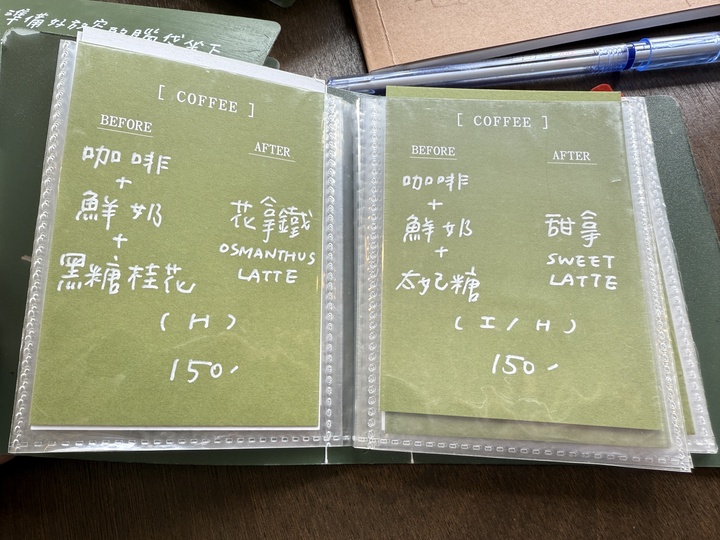 準備好記安的腦袋坐下
[ COFFEE ]
BEFORE
AFTER
咖啡
+
鮮奶
+
黑糖桂花
花拿鐵
OSMANTHUS
LATTE
( H )
150
[ COFFEE ]
BEFORE
AFTER
咖啡
+
鮮奶
+
太妃糖
甜拿
SWEET
LATTE
( I / H )
150